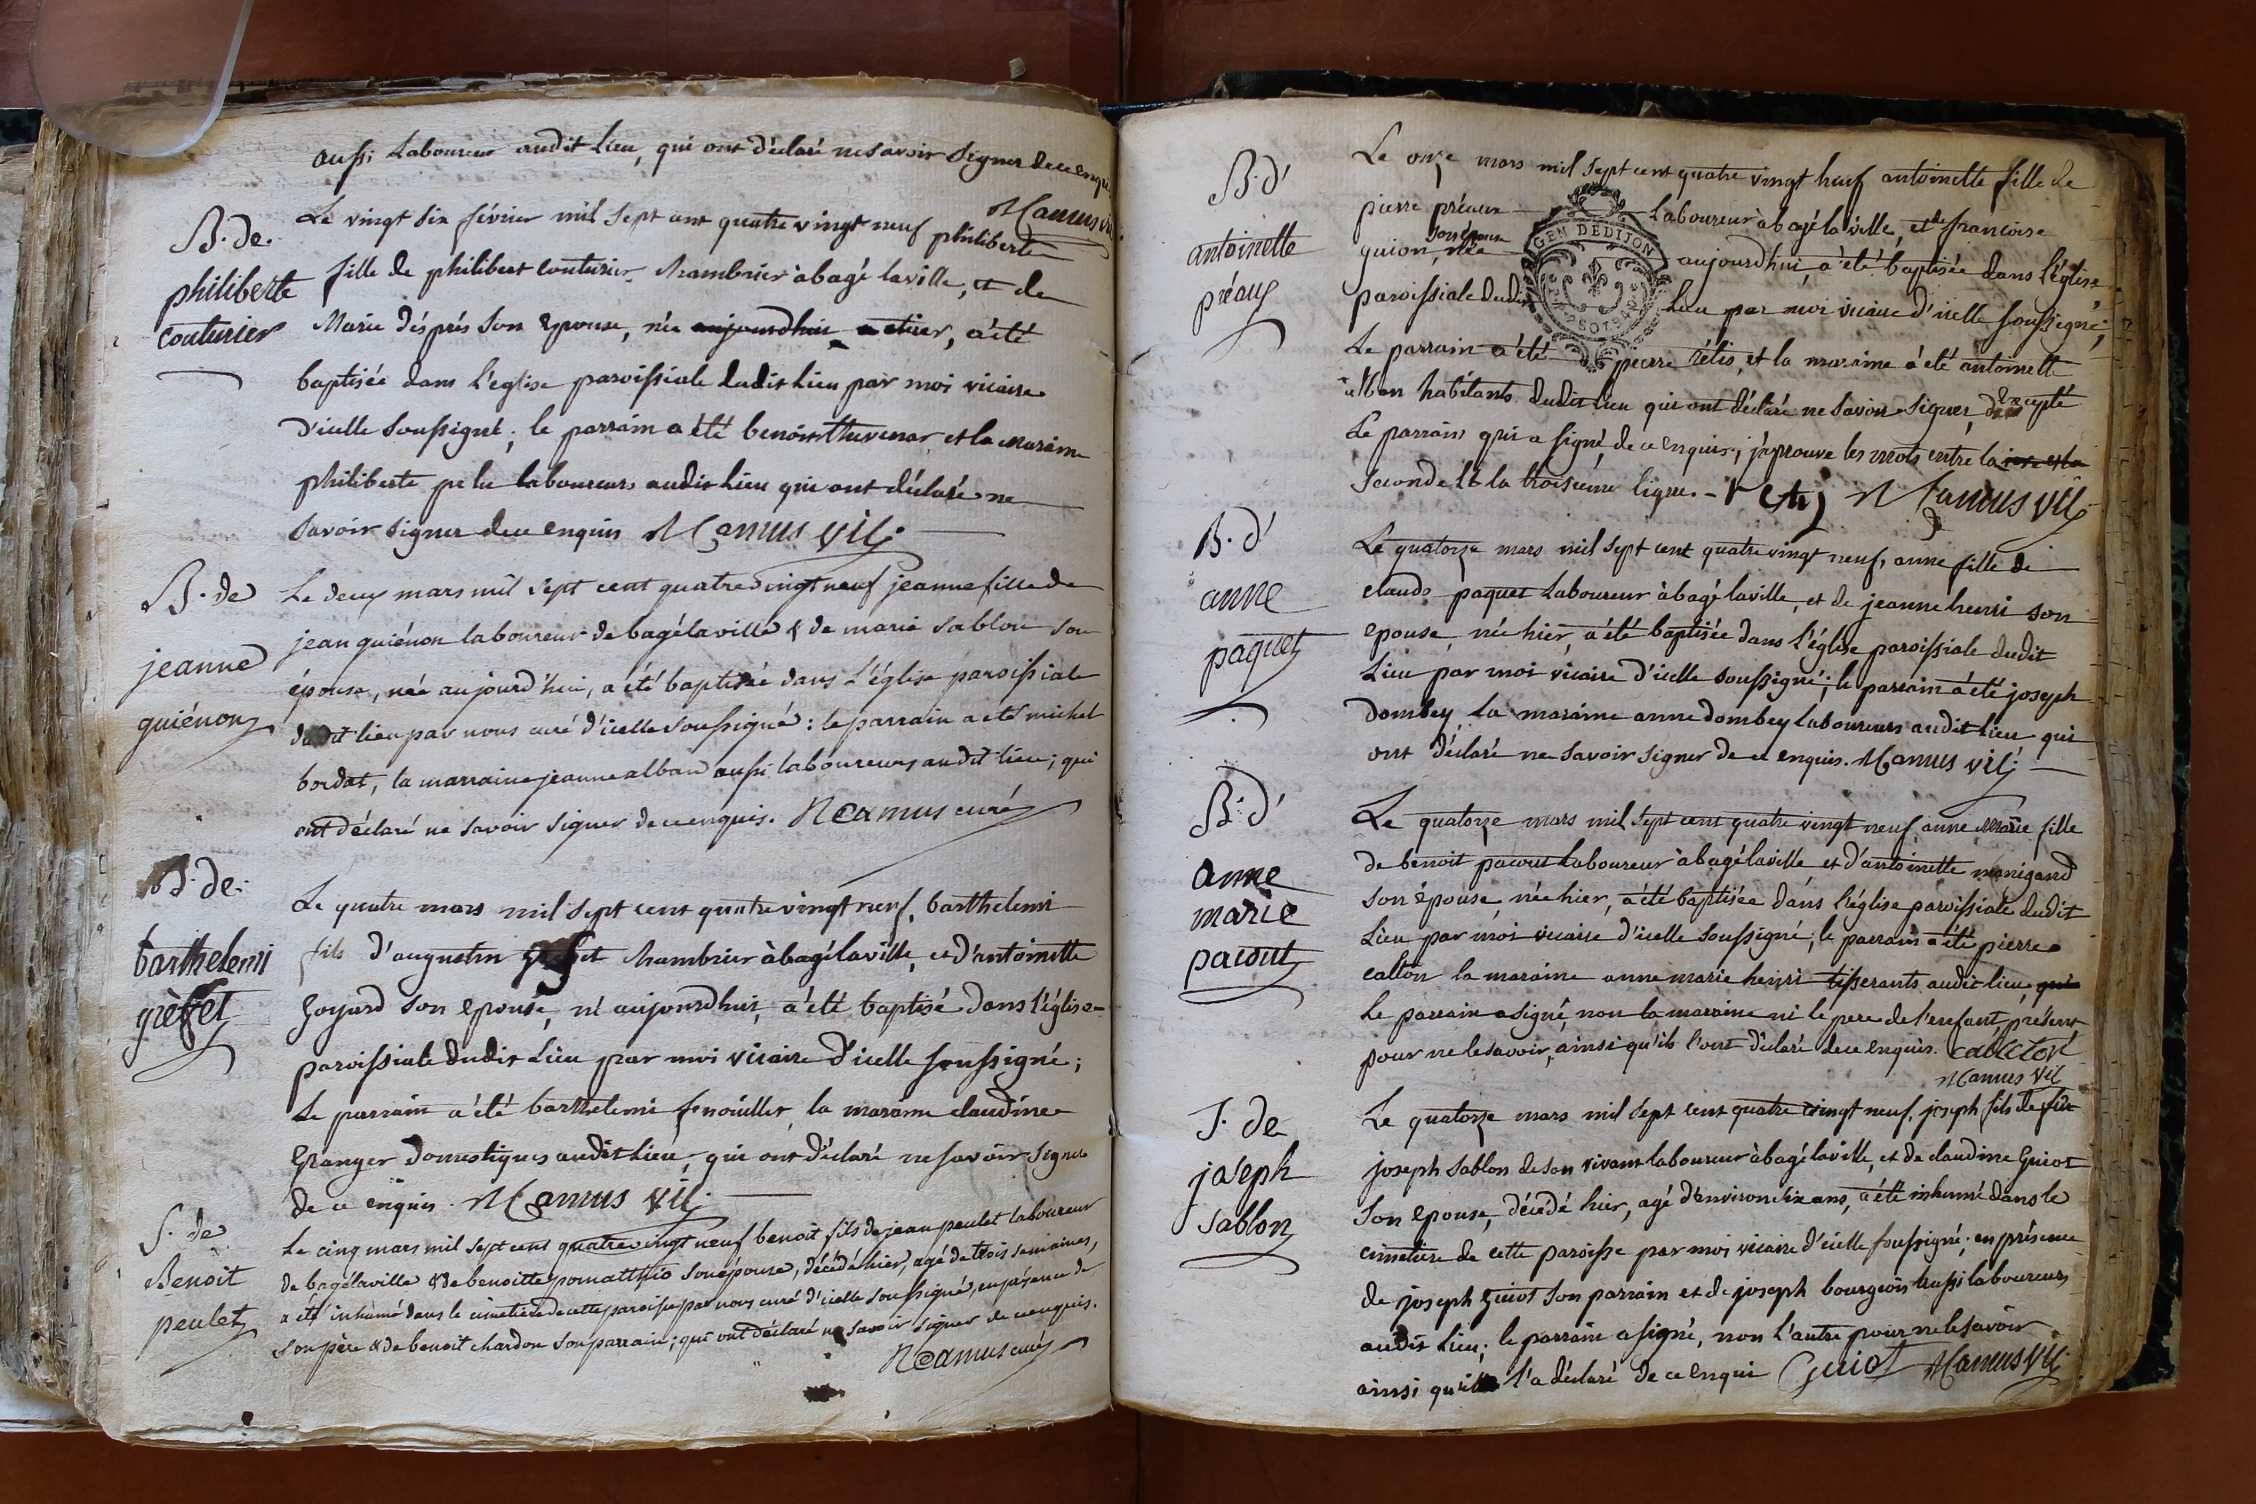 aussi Laboureur audit Lieu, qui ont déclaré ne savoir signer de ce enqui
N Camus vic
B. de
philiberte
couturier
Le vingt six février mil sept cent quatre vingt neuf philiberte
fille de philibert couturier chambrier à bagé laville, et de
Marie després son epouse, née aujourdhui, a été
baptisée dans l'eglise paroissiale dudit Lieu par moi vicaire
d'icelle soussigné; le parrain a été benoit thuvenar et la maraine
philiberte laboureurs audit Lieu qui ont déclaré ne
savoir signer de ce enquis N Camus vic.
B. de
jeanne
guiénon
Le deux mars mil sept cent quatre vingt neuf jeanne fille de
jean guiénon laboureur de bagé laville & de marie sablon son
épouse, née aujourd'hui, a été baptisée dans l'église paroissiale
dudit lieu par nous curé d'icelle soussigné: le parrain a été michel
bordat, la marraine jeanne alban aussi laboureurs audit lieu; qui
ont déclaré ne savoir signer de ce enquis. N Camus curé
B. de
barthelemi
grèffet
Le quatre mars mil sept cent quatre vingt neuf, barthelemi
fils d'augustin chambrier à bagé laville, et d'antoinette
goyard son epouse, né aujourdhui, a été baptisé dans l'église
paroissiale dudit Lieu par moi vicaire d'icelle soussigné;
Le parrain a été barthelemi fenouiller, la maraine claudine
granger domestiques audit Lieu, qui ont déclaré ne savoir signer
de ce enquis. N Camus vic.
S. de
Benoit
peulet
Le cinq mars mil sept cent quatre vingt neuf benoit fils de jean peulet laboureur
de bagé laville & de benoitte pomatthio son épouse, décédé hier, agé de trois semaines,
a été inhumé dans le cimetière de cette paroisse par nous curé d'icelle soussigné, en présence de
son père & de benoit chardon son parrain; qui ont déclaré ne savoir signer de ce enquis.
N Camus curé
B. d'
antoinette
préaux
Le onze mars mil sept cent quatre vingt neuf antoinette fille de
pierre préaux Laboureur à bagé la ville, et de francoise
guion, son epouse née aujourdhui, a été baptisée dans l'église
GEN DE DIJON
paroissiale dudit Lieu par moi vicaire d'icelle soussigné;
Le parrain a été pierre rétis, et la maraine a été antoinette
alban habitants dudit Lieu qui ont déclaré ne savoir signer, excepté
Le parrain qui a signé, de ce enquis; j'aprouve les mots entre la
seconde et la troisième ligne. - N Camus vic
B. d'
anne
paquet
Le quatorze mars mil sept cent quatre vingt neuf, anne fille de
claude paquet Laboureur à bagé laville, et de jeanne henri son
epouse, née hier, a été baptisée dans l'église paroissiale dudit
Lieu par moi vicaire d'icelle soussigné; le parrain a été joseph
dombey, la maraine anne dombey laboureurs audit Lieu qui
ont déclaré ne savoir signer de ce enquis. N Camus vic
B. d'
anne
marie
pacout
Le quatorze mars mil sept cent quatre vingt neuf, anne Marie fille
de benoit pacout Laboureur à bagé laville, et d'antoinette monigand
son épouse, née hier, a été baptisée dans l'église paroissiale dudit
Lieu par moi vicaire d'icelle soussigné; le parrain a été pierre
catton la maraine anne marie henri tisserants audit lieu, qui
Le parrain a signé, non la marraine ni le pere de l'enfant, présent
pour ne le savoir, ainsi qu'ils l'ont déclaré de ce enquis.
N Camus vic
S. de
joseph
sablon
Le quatorze mars mil sept cent quatre vingt neuf, joseph fils de feu
joseph sablon de son vivant laboureur à bagé laville, et de claudine guiot
son epouse, décédé hier, agé d'environ dix ans, a été inhumé dans le
cimetière de cette paroisse par moi vicaire d'icelle soussigné; en présence
de joseph guiot son parrain et de joseph bourgeois aussi laboureurs
audit Lieu; le parrain a signé, non l'autre pour ne le savoir
ainsi qu'il l'a déclaré de ce enqui Guiot N Camus vic